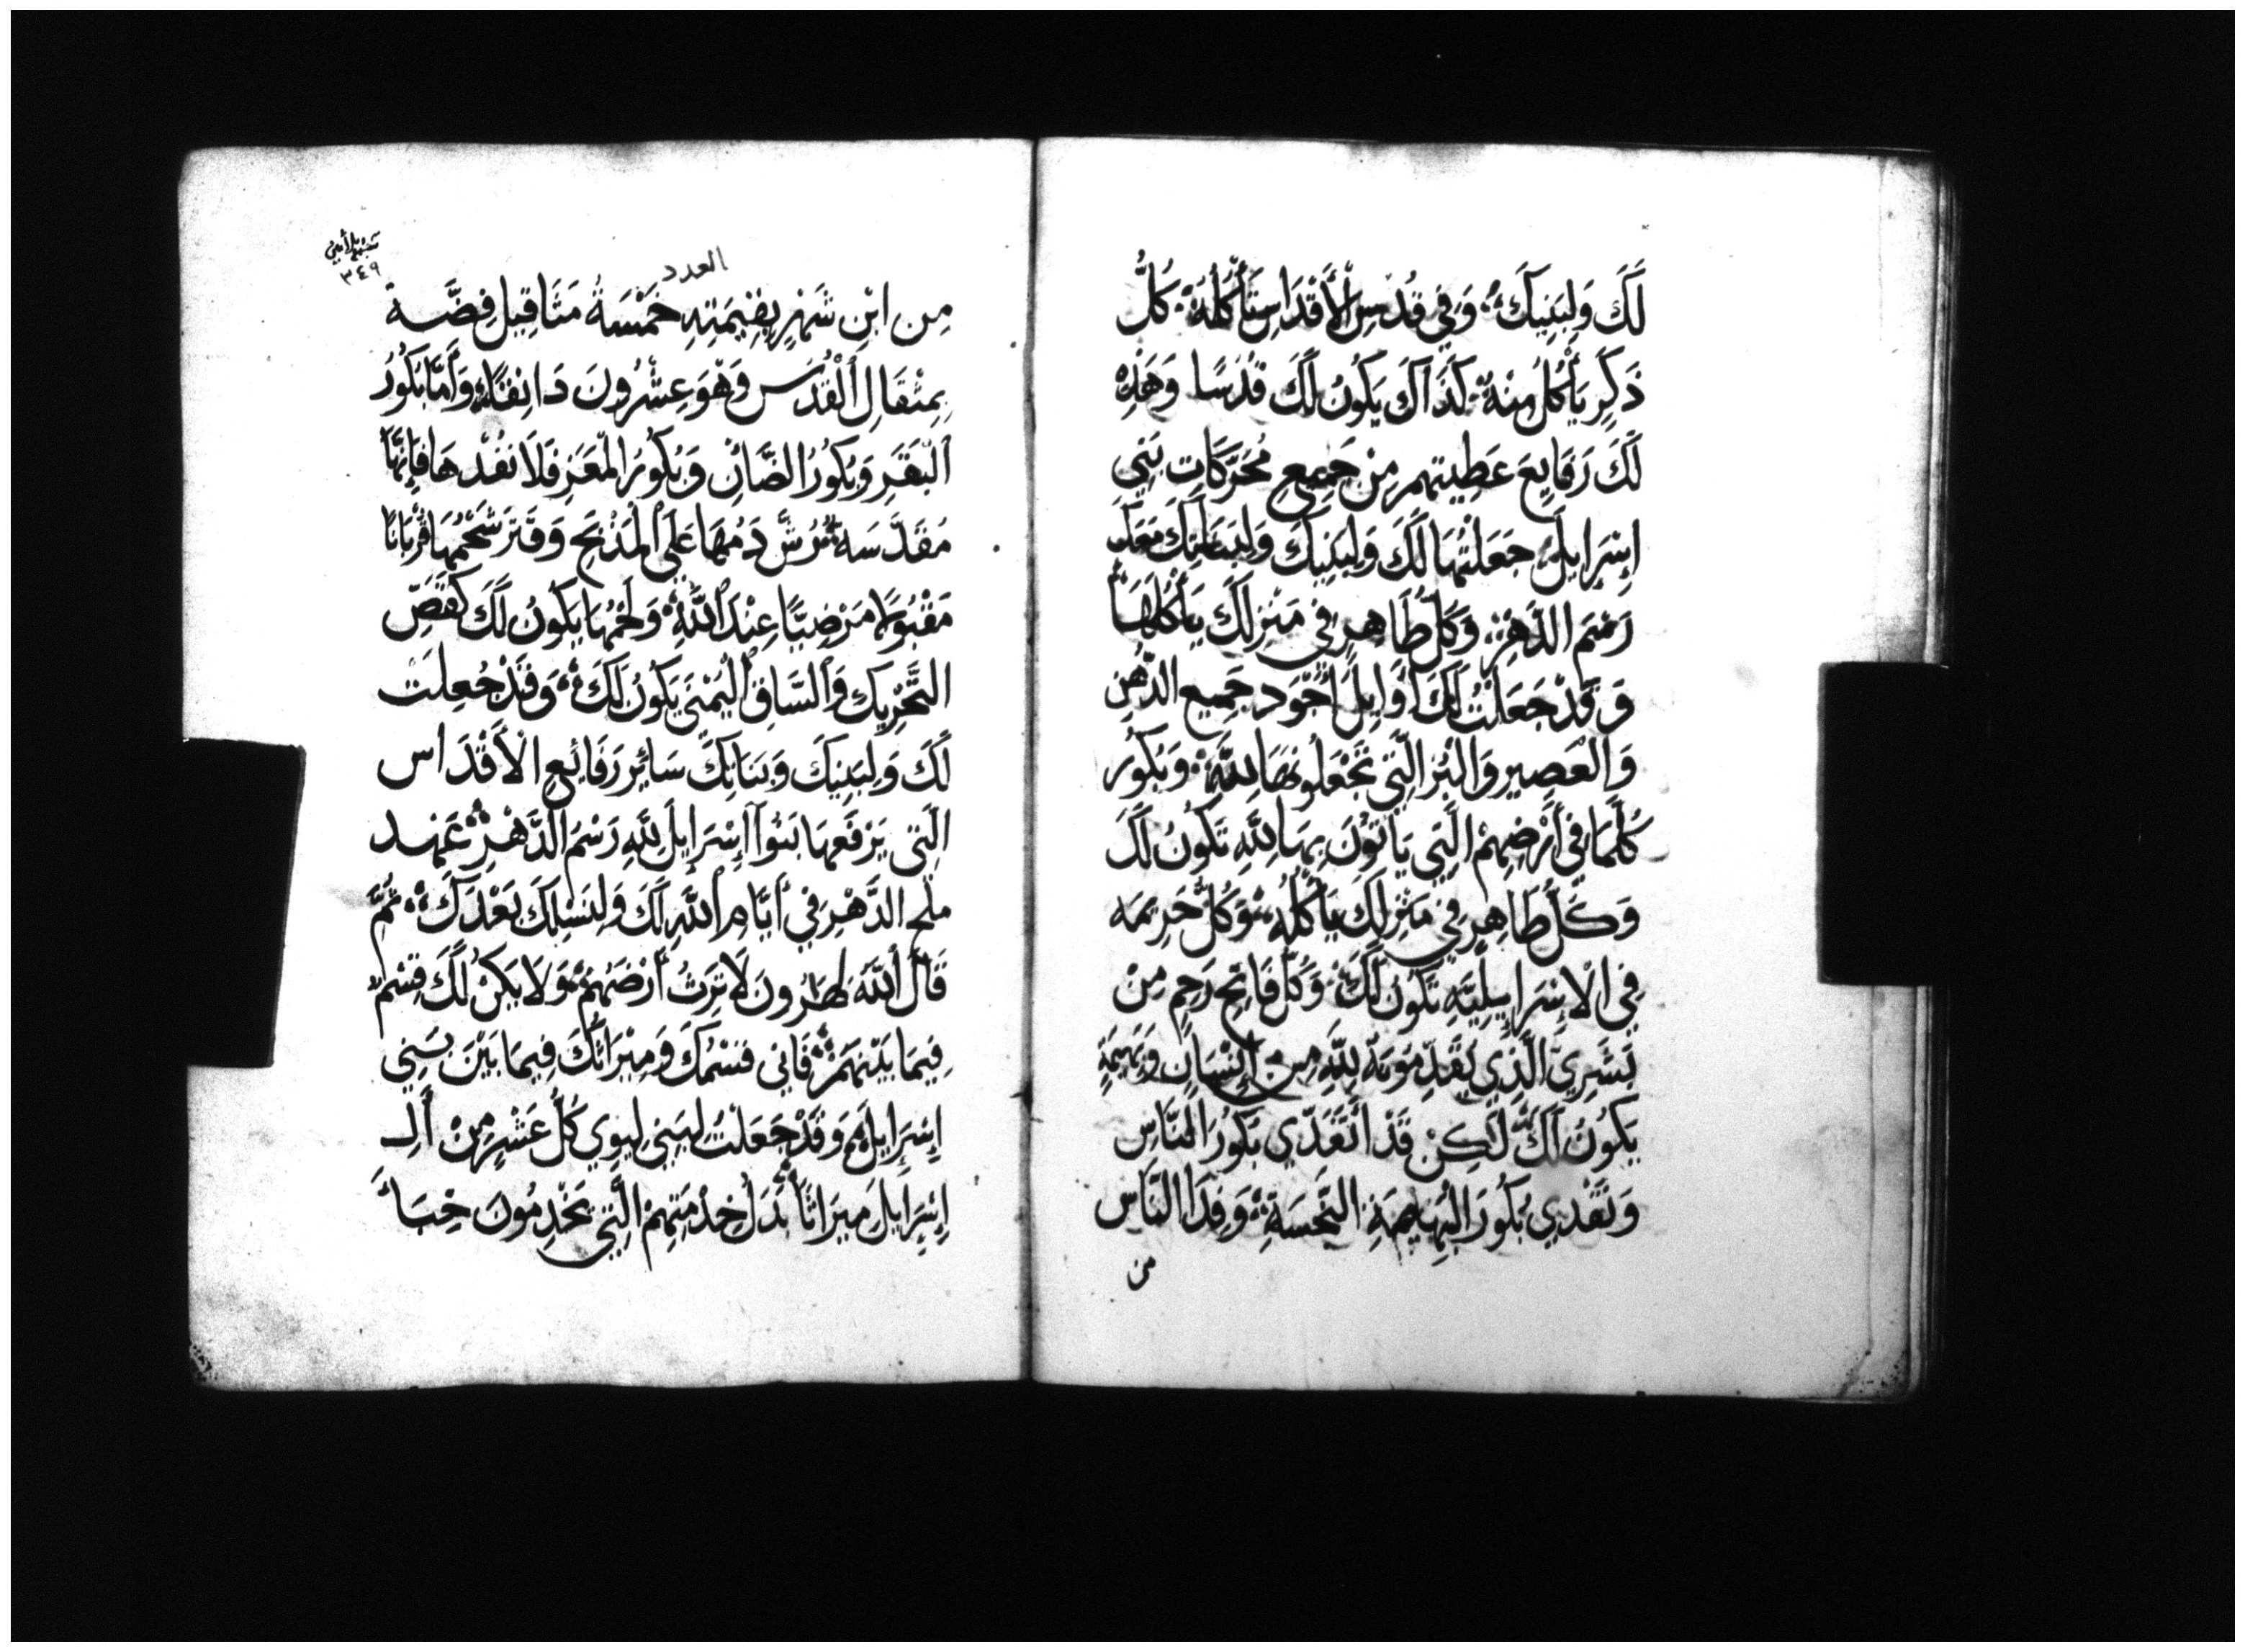 لَكَ وَلِبَنِيكَ؛ وَفِي قُدْسِ الْأَقْدَاسِ تَأْكُلْهُ؛ كُلُّ
ذَكَرٍ يَأْكُلُ مِنْهُ؛ كَذَاكَ يَكُونُ لَكَ قُدْسًا وَهَذِهِ
لَكَ رَفَايِعَ عَطِيتهم مِنْ جَمِيعِ مُحَرَّكَاتِ بَنِي
إِسْرَايِلَ؛ جَعَلْتُهَا لَكَ وَلِبَنِيكَ وَلِبَنَاتِكَ مَعَكَ
رَسْمَ الدَّهْرِ؛ وَكُلُّ طَاهِرٍ فِي مَنْزِلَكَ يَأْكُلُهَا
وَقَدْ جَعَلْتُ لَكَ أَوَايِلَ أَجْوَد جَمِيع الدُّهْنِ
وَالْعَصِيرِ وَالْبُرّ الَّتِي تَجْعَلُونَهَا لِلَّهِ؛ وَبُكُور
كُلَّمَا فِي أَرْضِهِمْ الَّتِي يَأْتُونَ بِهَا لِلَّهِ تَكُونُ لَكَ
وَكُلُّ طَاهِرٍ فِي مَنْزِلَكَ يَأْكُلُهُ؛ وَكُلُّ حَرِيمَه
فِي الْإِسْرَايِيلِيَّهِ تَكُونُ لَكَ؛ وَكُلُّ فَاتِحِ رَحِمٍ مِنْ
بَشَرِيّ الَّذِي يُقَدِّمُونَهُ لِلَّهِ مِنْ إِنْسَانٍ وَبَهِيمَةٍ
يَكُونُ لَكَ لَكِنْ قَدْ تَفْدِي بُكُورَ النَّاسِ
وَتَفْدِي بُكُورَ الْبَهِيمَةِ النَّجِسَةِ؛ وَفِدَا النَّاسِ
من
تثنية الأربعين
٣٤٩
العدد
مِن ابْنِ شَهْرٍ بِقِيمَتِهِ خَمْسَةُ مَثَاقِيل فِضَّة
بِمِثْقَالِ الْقُدْسِ وَهُوَ عِشْرُونَ دَانِقًا؛ وَأَمَّا بُكُورُ
الْبَقَرِ وَبُكُورُ الضَّأنِ وَبُكُورُ الْمَعَزِ فَلَا تَفْدِهَا فَإِنَّهَا
مُقَدَّسَه؛ تُرُشَّ دَمُهَا عَلَى الْمَذْبَحِ وَقَتِّرَ شَحْمُهَا قُرْبَانًا
مَقْبُولًا مَرْضِيًّا عِنْدَ اللَّهِ؛ وَلَحْمُهَا يَكُونُ لَكَ كَقَصِّ
التَّحْرِيكِ وَالسَّاقِ الْيُمْنَى يَكُونُ لَكَ؛ وَقَدْ جُعِلَتْ
لَكَ وَلِبَنِيكَ وَبَنَاتِكَ سَائِرَ رَفَائِعِ الْأَقْدَاسِ
الَّتِي يَرْفَعُهَا بَنُوا إِسْرَايِلَ لِلَّهِ رَسْمَ الدَّهْرِ؛ عَهْد
مِلْحِ الدَّهْرِ فِي أَيَّامِ اللَّهِ لَكَ وَلِنَسْلِكَ بَعْدَكَ؛ ثُمَّ
قَالَ اللَّهَ لِهَارُونَ لَا تَرِثُ أَرْضَهُمْ؛ وَلَا يَكُنْ لَكَ قِسْمٌ
فِيمَا بَيْنَهُمْ؛ فَانِي قَسْمُكَ وَمِيرَاثُكَ فِيمَا بَيْنَ بَنِي
إِسْرَايِلَ؛ وَقَدْ جَعَلْتُ لِبَنِي لِيوِي كُلَّ عَشْرٍ مِنْ أَلِـ
إِسْرَايِلَ مِيرَاثًا بَدَلَ خِدْمَتِهِمْ الَّتِي يَخْدِمُونَ خِبَاءَ